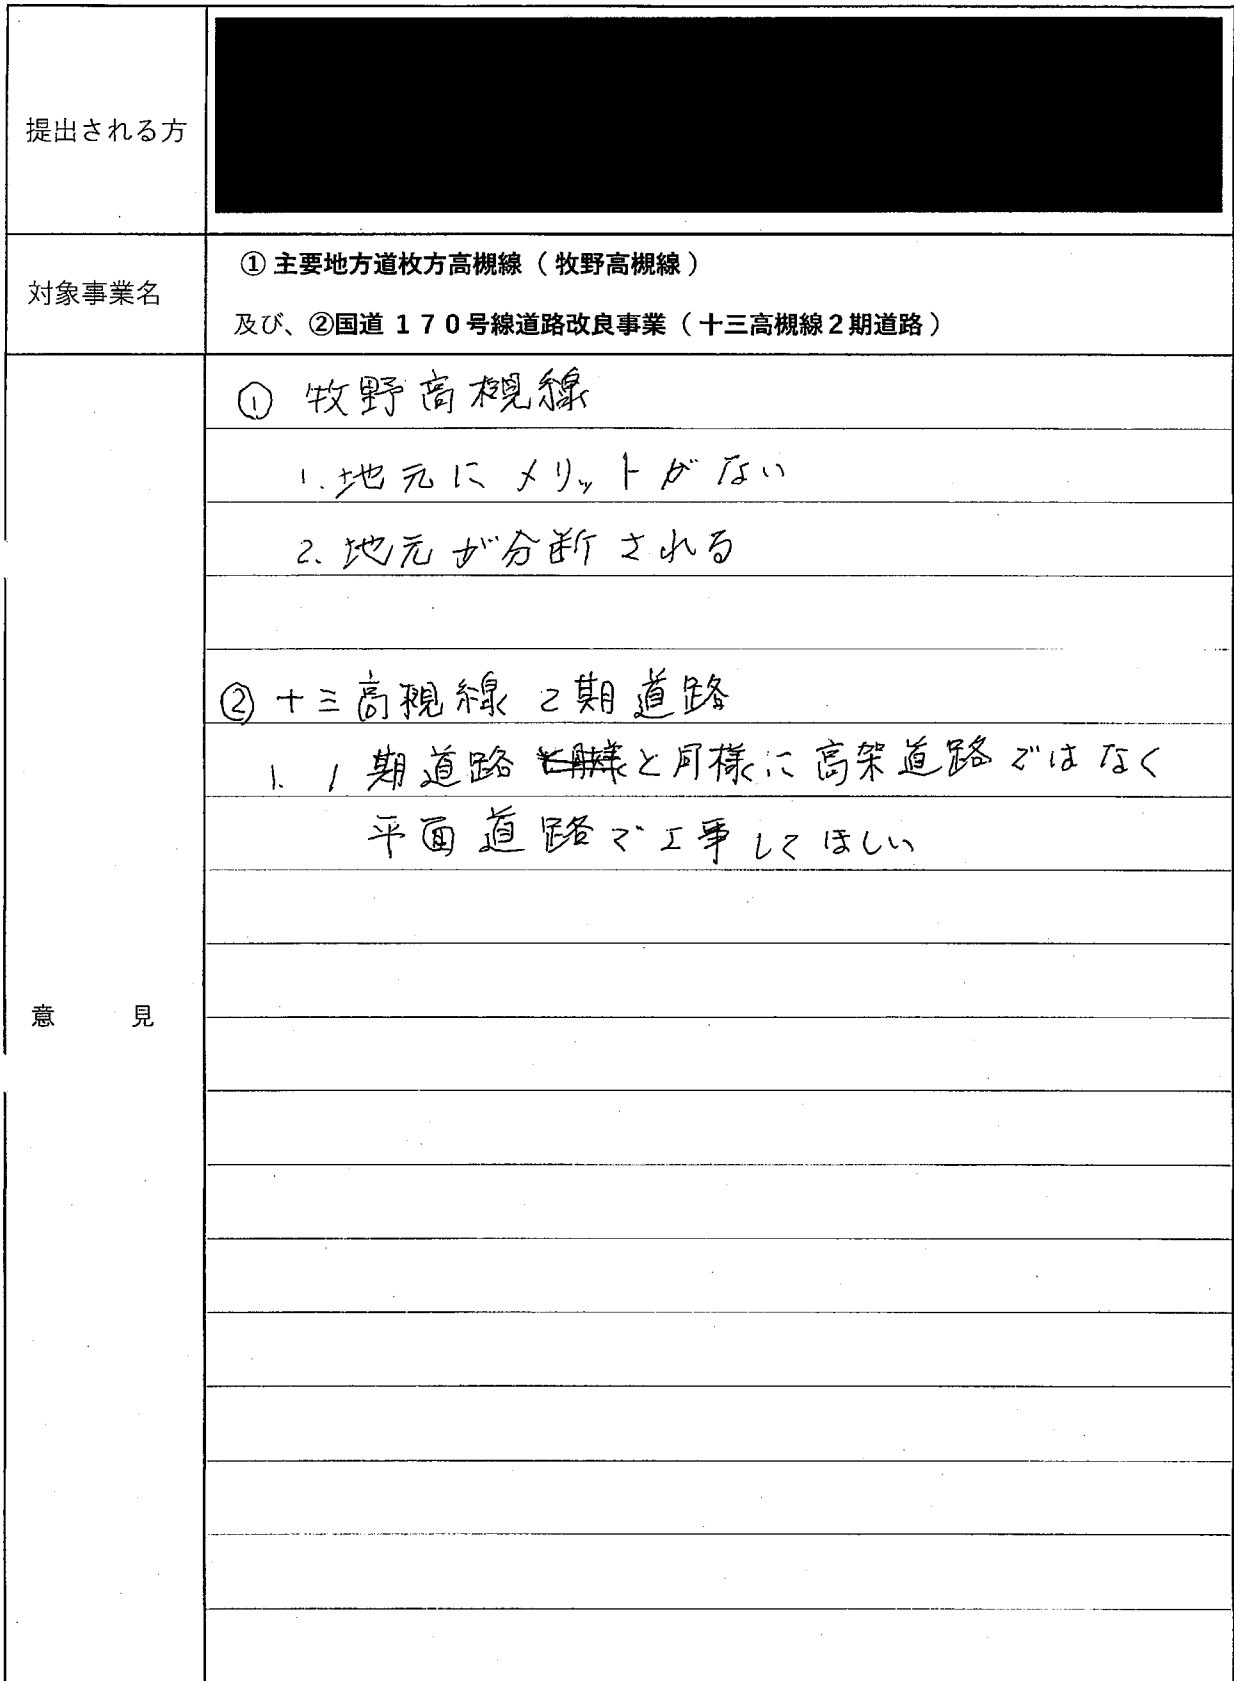 提出される方
対象事業名
① 主要地方道枚方高槻線（牧野高槻線）
及び、②国道１７０号線道路改良事業（十三高槻線２期道路）
意　見
① 牧野高槻線
1. 地元にメリットがない
2. 地元が分断される
② 十三高槻線2期道路
1. 1期道路と同様に高架道路ではなく
平面道路で工事してほしい